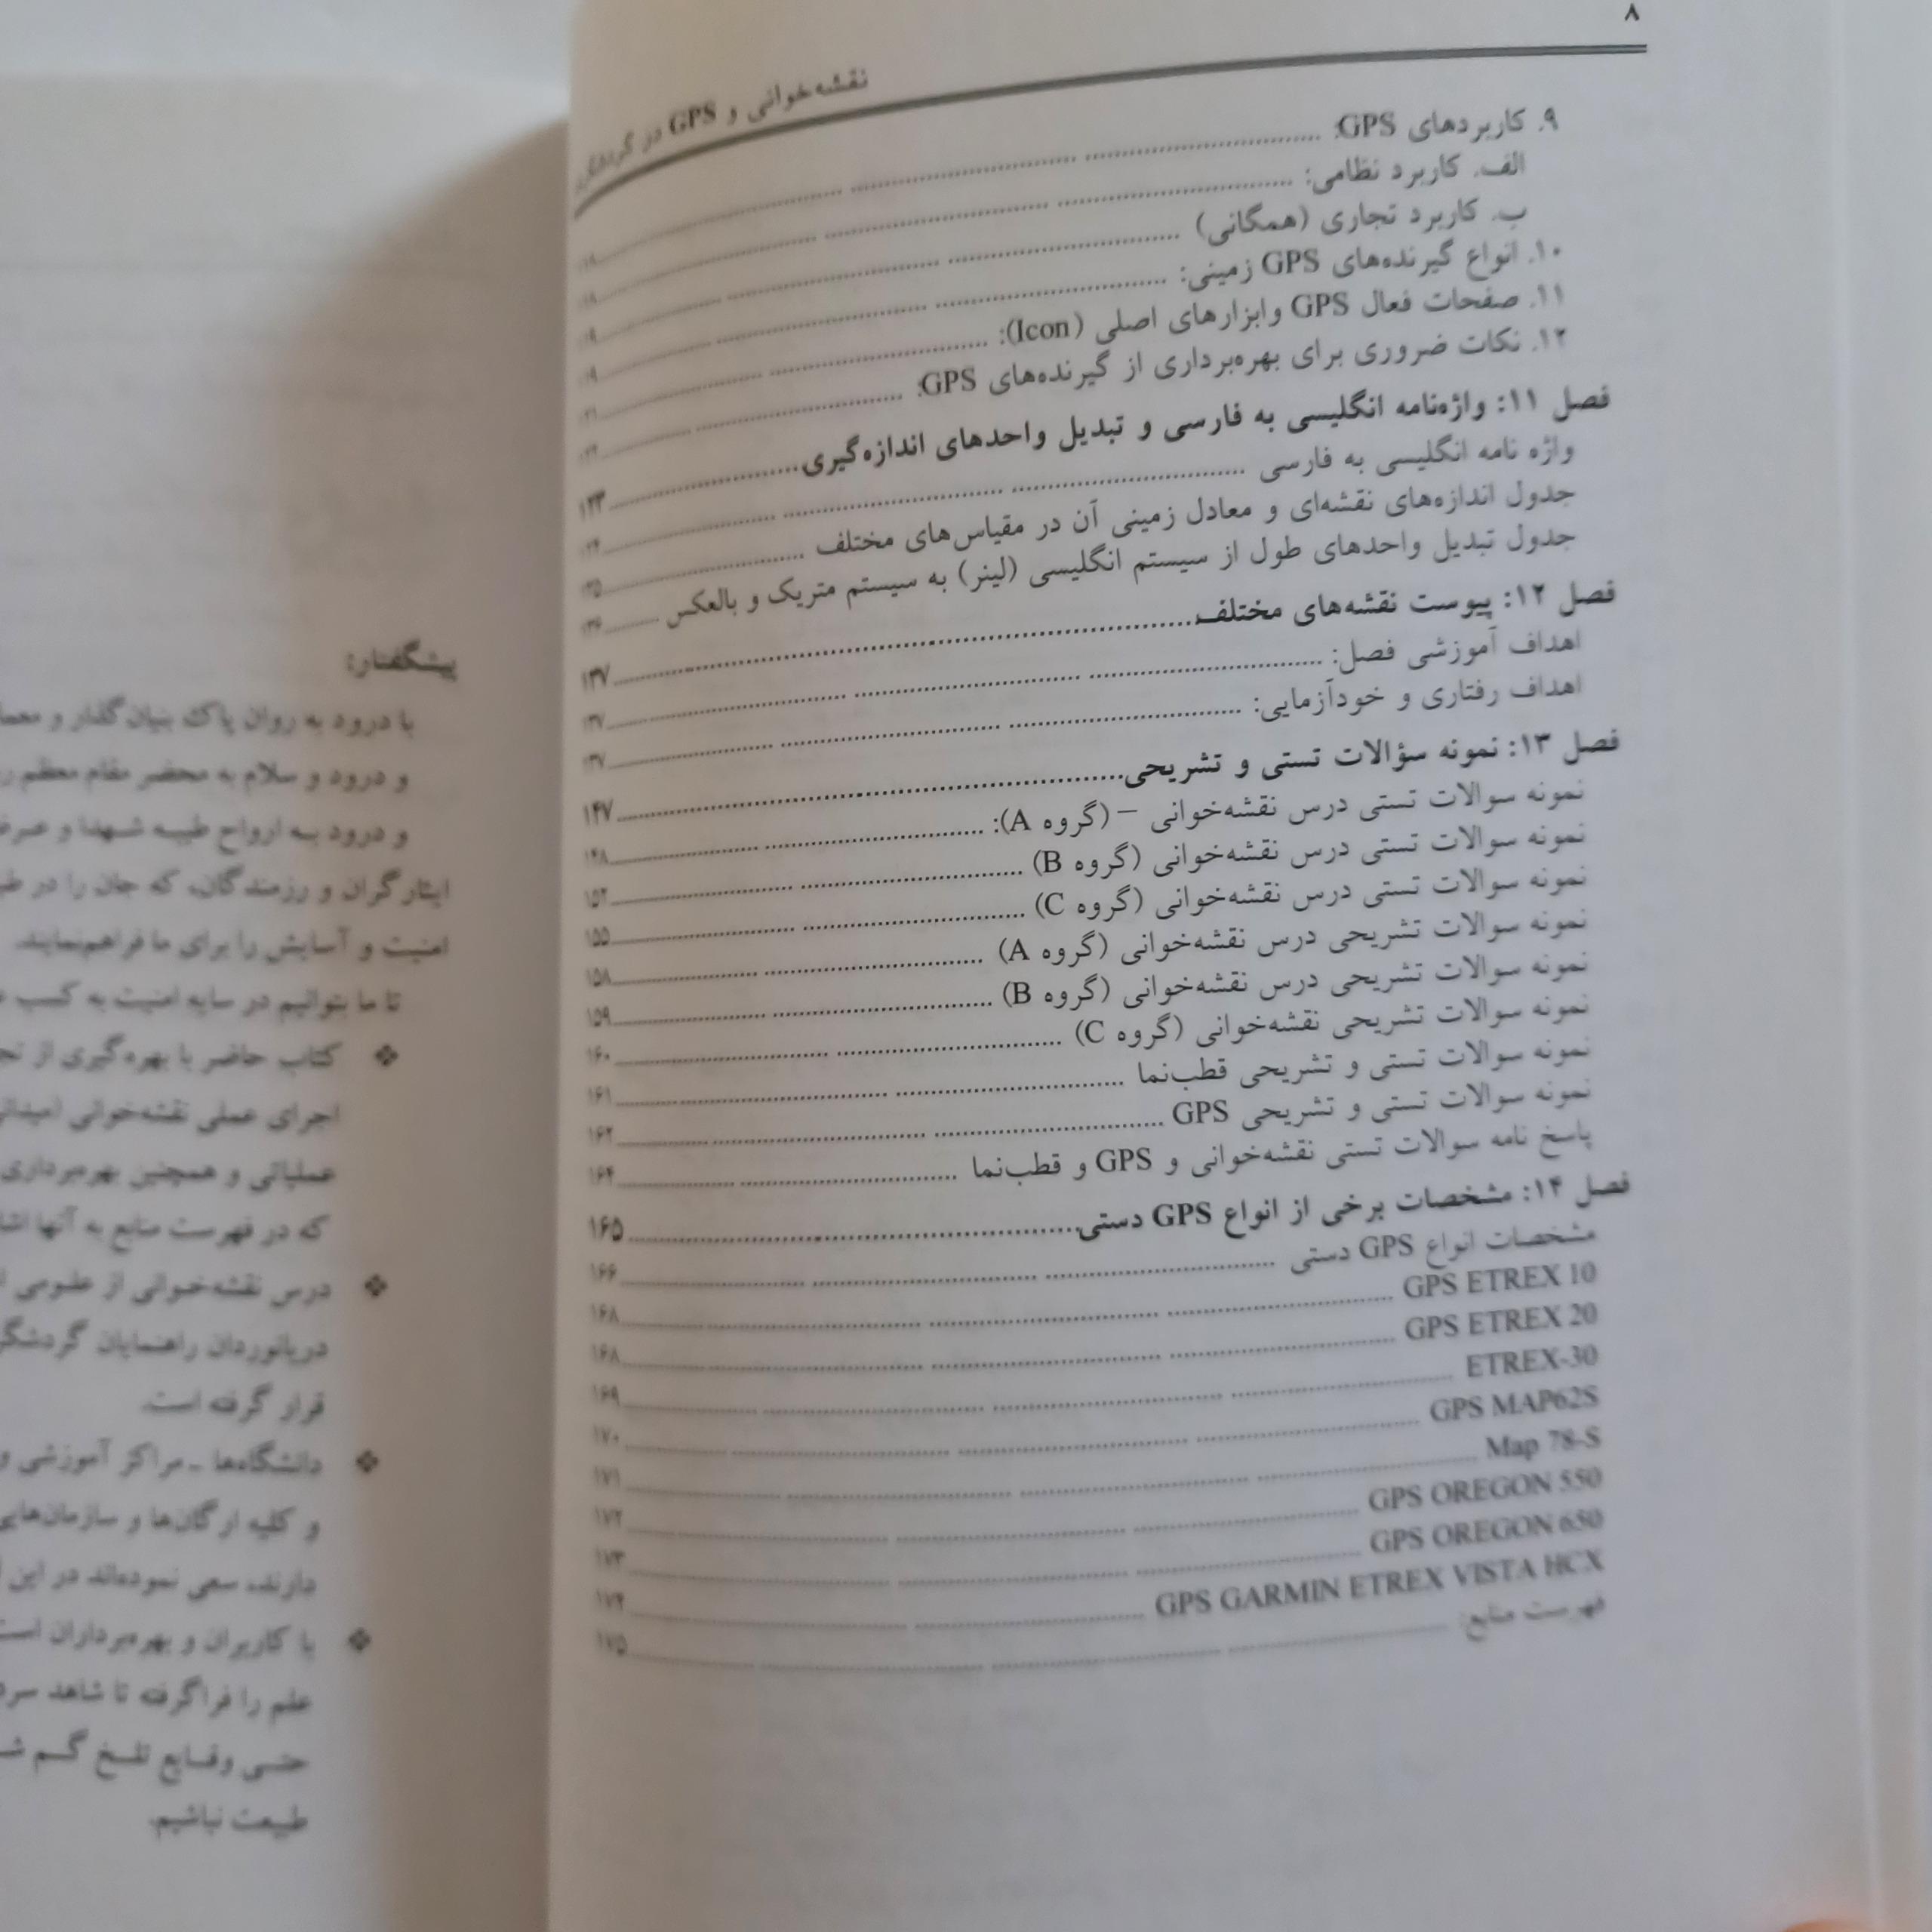 ۸
نقشه‌خوانی و GPS در
۹. کاربردهای GPS:
الف. کاربرد نظامی:
ب. کاربرد تجاری (همگانی)
۱۰. انواع گیرنده‌های GPS زمینی:
۱۱. صفحات فعال GPS وابزارهای اصلی (Icon):
۱۲. نکات ضروری برای بهره‌برداری از گیرنده‌های GPS:
فصل ۱۱: واژه‌نامه انگلیسی به فارسی و تبدیل واحدهای اندازه‌گیری ۱۲۳
واژه نامه انگلیسی به فارسی
جدول اندازه‌های نقشه‌ای و معادل زمینی آن در مقیاس‌های مختلف
جدول تبدیل واحدهای طول از سیستم انگلیسی (لینر) به سیستم متریک و بالعکس
فصل ۱۲: پیوست نقشه‌های مختلف ۱۳۷
اهداف آموزشی فصل:
اهداف رفتاری و خودآزمایی:
فصل ۱۳: نمونه سؤالات تستی و تشریحی ۱۴۷
نمونه سوالات تستی درس نقشه‌خوانی – (گروه A): ۱۴۸
نمونه سوالات تستی درس نقشه‌خوانی (گروه B) ۱۵۲
نمونه سوالات تستی درس نقشه‌خوانی (گروه C) ۱۵۵
نمونه سوالات تشریحی درس نقشه‌خوانی (گروه A) ۱۵۸
نمونه سوالات تشریحی درس نقشه‌خوانی (گروه B) ۱۵۹
نمونه سوالات تشریحی نقشه‌خوانی (گروه C) ۱۶۰
نمونه سوالات تستی و تشریحی قطب‌نما ۱۶۱
نمونه سوالات تستی و تشریحی GPS ۱۶۲
پاسخ نامه سوالات تستی نقشه‌خوانی و GPS و قطب‌نما ۱۶۴
فصل ۱۴: مشخصات برخی از انواع GPS دستی ۱۶۵
مشخصات انواع GPS دستی ۱۶۶
GPS ETREX 10 ۱۶۸
GPS ETREX 20 ۱۶۸
ETREX-30 ۱۶۹
GPS MAP62S ۱۷۰
Map 78-S ۱۷۱
GPS OREGON 550 ۱۷۲
GPS OREGON 650 ۱۷۳
GPS GARMIN ETREX VISTA HCX ۱۷۴
فهرست منابع: ۱۷۵
پیشگفتار:
با درود به روان پاک بنیان‌گذار و
و درود و سلام به محضر مقام معظم
و درود به ارواح طیبه شهدا و
ایثارگران و رزمندگان، که جان را در
امنیت و آسایش را برای ما فراهم‌نمایند.
تا ما بتوانیم در سایه امنیت به کسب
❖ کتاب حاضر با بهره‌گیری از
اجرای عملی نقشه‌خوانی
عملیاتی و همچنین بهره‌برداری
که در فهرست منابع به آنها
❖ درس نقشه‌خوانی از علومی
دریانوردان راهنمایان
قرار گرفته است.
❖ دانشگاه‌ها ـ مراکز آموزشی و
و کلیه ارگان‌ها و سازمان‌هایی
دارند، سعی نموده‌اند در این
❖ با کاربران و بهره‌برداران است
علم را فراگرفته تا شاهد
حتی وقایع تلخ گم
طبیعت نباشیم.